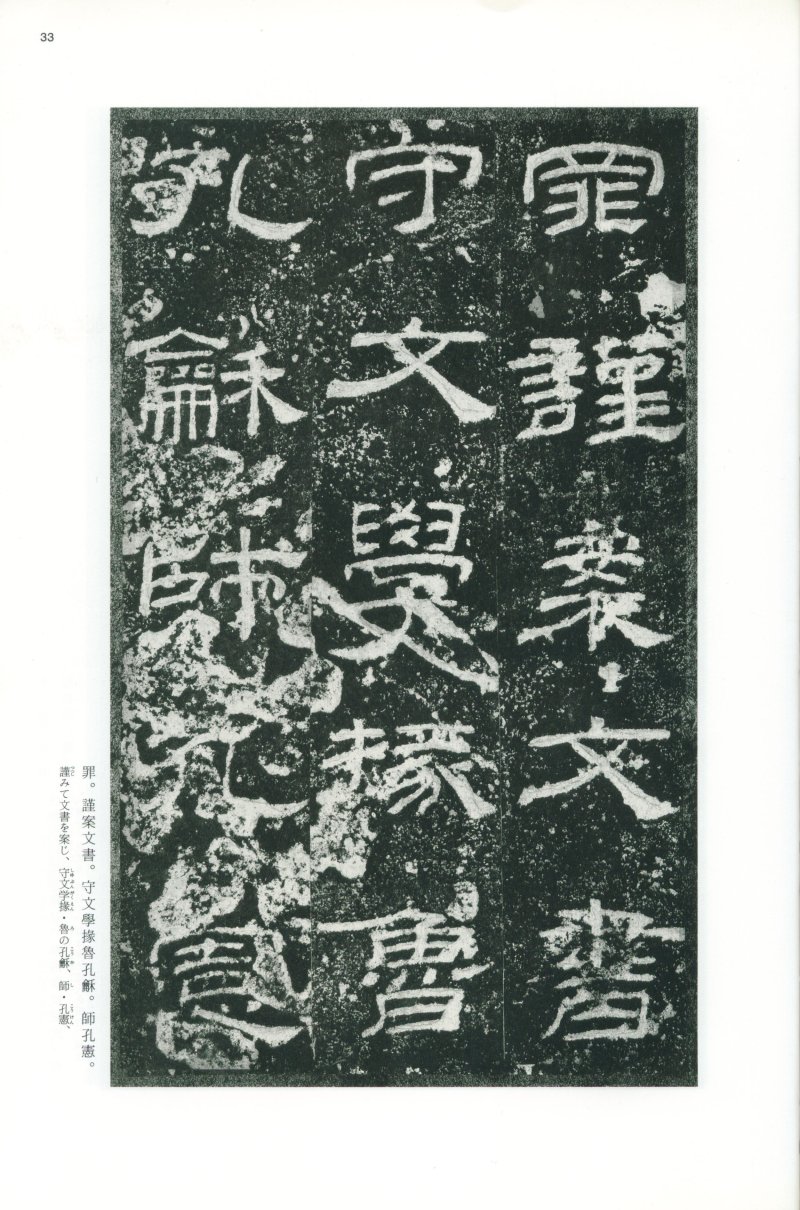 33
罪謹案文書
守文學掾魯
孔龢師孔憲
罪。謹案文書。守文學掾魯孔龢。師孔憲。
謹みて文書を案じ、守文学掾・魯の孔龢、師・孔憲、